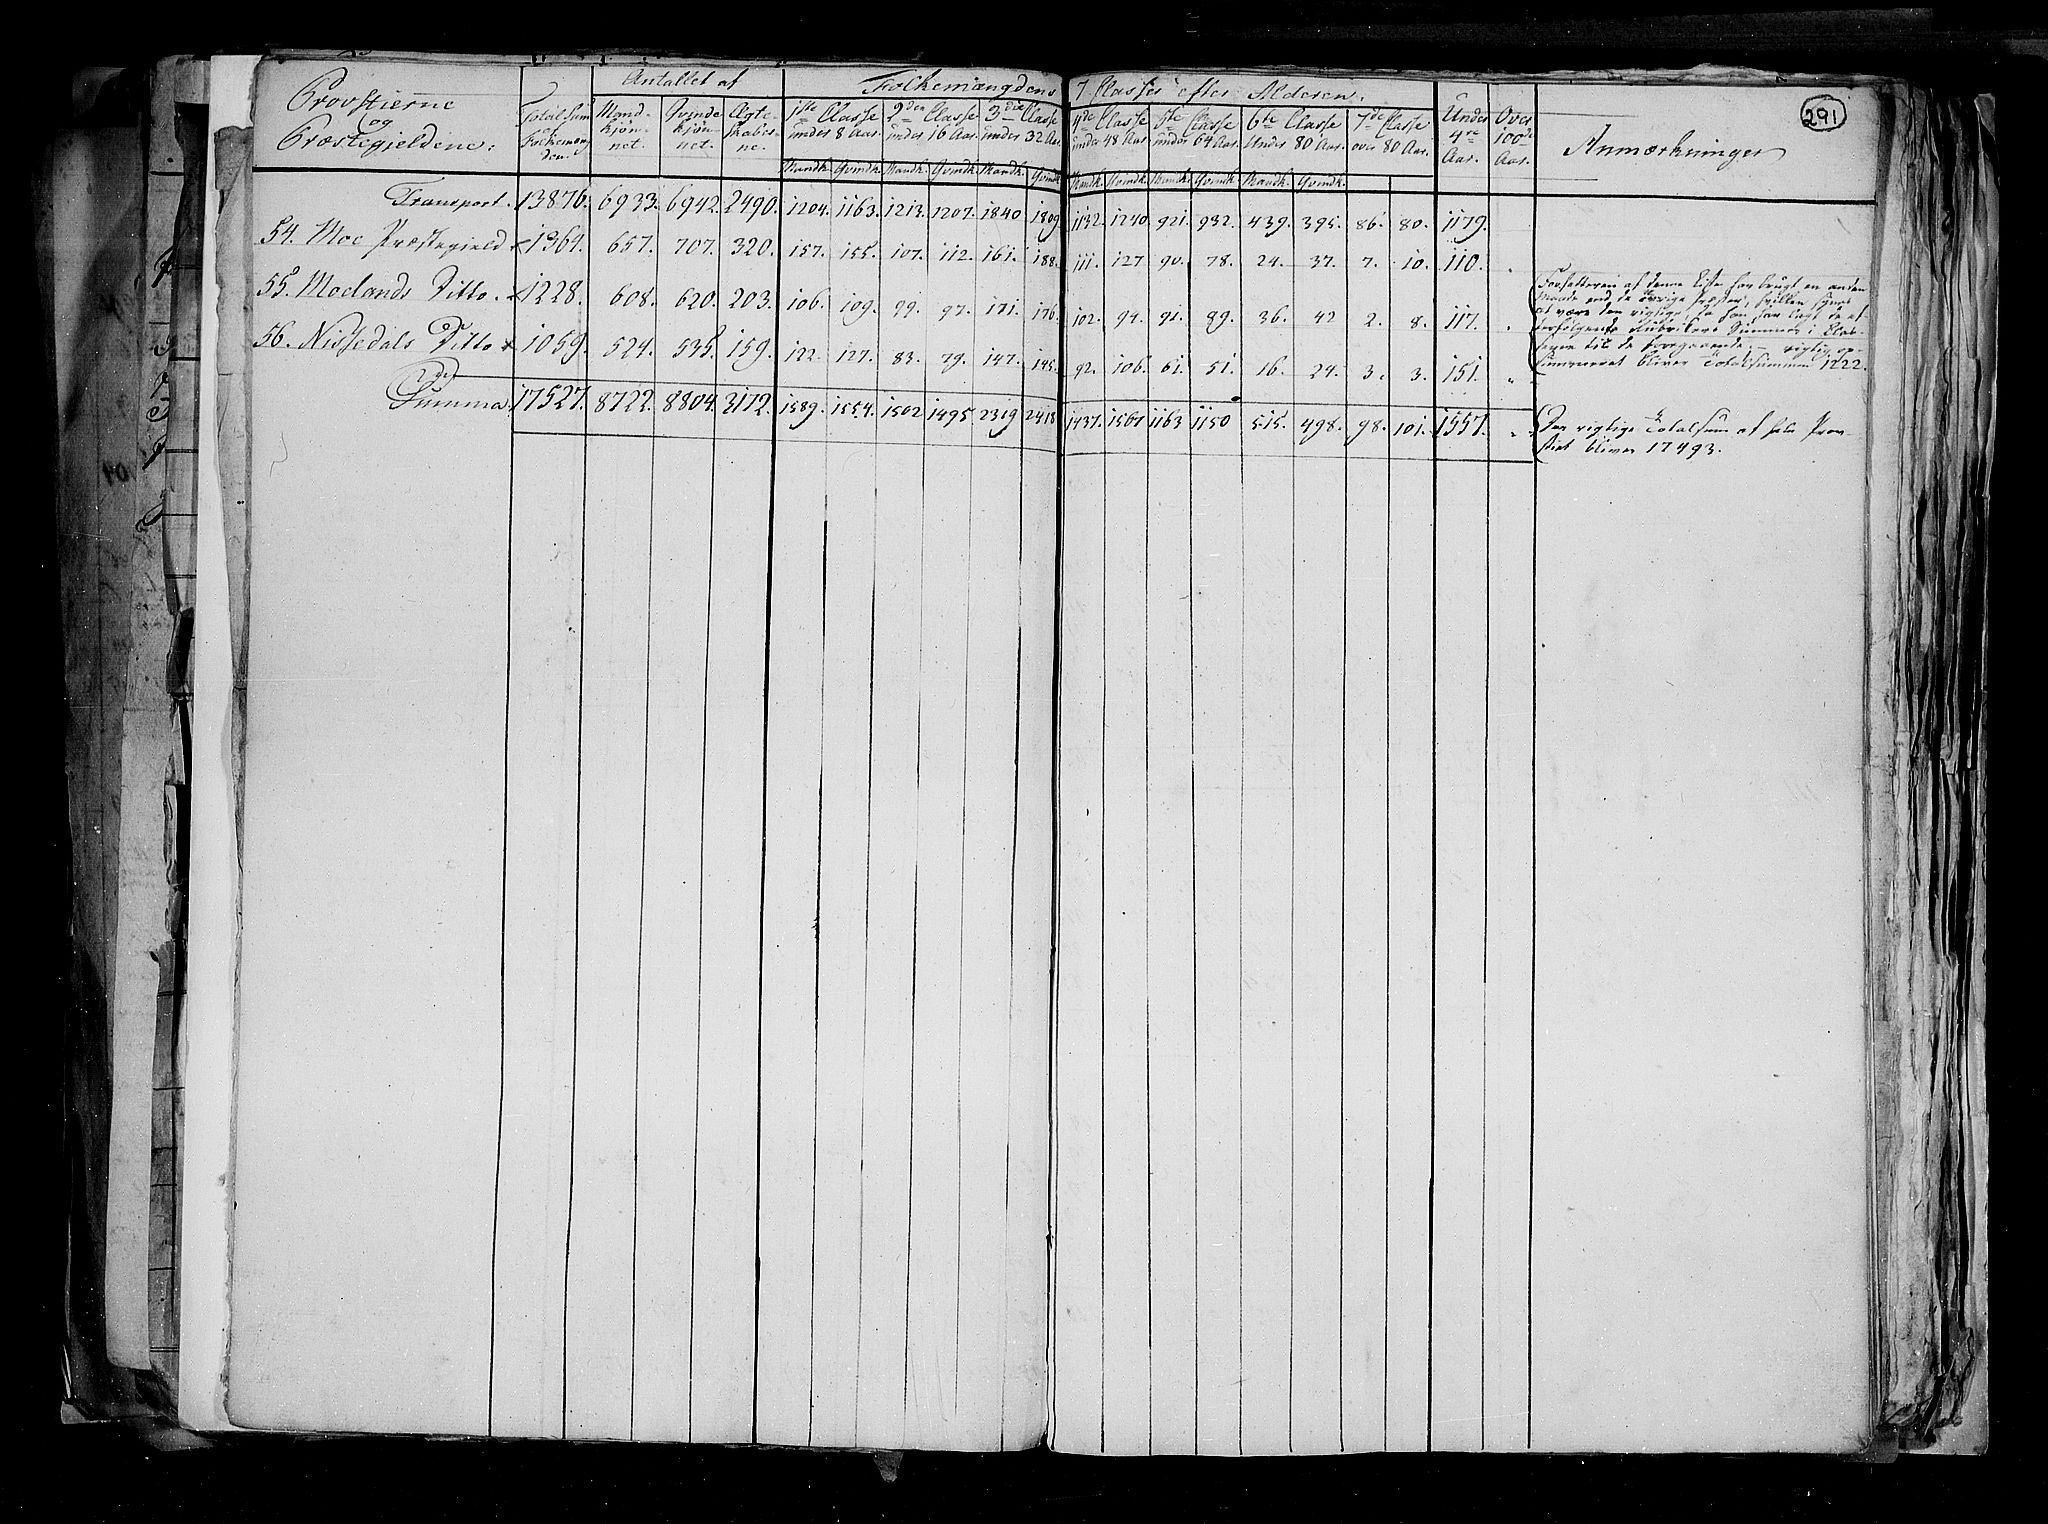 291
Provstierne og Præstegieldene.
Total Sum af Folkemængden.
Antallet af
Mandkjønnet. Qvindekjønnet. Ægteskaberne.
Folkemængdens 7 Classer efter Alderen.
1ste Classe under 8 Aar. 2den Classe under 16 Aar. 3die Classe under 32 Aar.
4de Classe under 48 Aar. 5te Classe under 64 Aar. 6te Classe under 80 Aar. 7de Classe over 80 Aar.
Under 4re Aar. Over 100de Aar.
Anmærkninger
Mandk. Qvindk. Mandk. Qvindk. Mandk. Qvindk. Mandk. Qvindk. Mandk. Qvindk. Mandk. Qvindk.
Transport. 13876. 6933. 6942. 2490. 1204. 1163. 1213. 1207. 1840 1809 1132. 1240. 921. 932. 439. 395. 86. 80. 1179.
54. Moe Præstegield 1364. 657. 707. 320. 157. 155. 107. 112. 161. 188. 111. 127 90. 78. 24. 37. 7. 10. 110. "
55. Moelands Ditto. 1228. 608. 620. 203. 106. 109. 99. 97. 171. 176. 102. 94. 91. 89. 36. 42 2. 8. 117. "
56. Nissedals Ditto 1059. 524. 535. 159. 122. 127. 83. 79. 147. 145. 92. 106. 61. 51. 16. 24. 3. 3. 151. "
Summa. 17527. 8722. 8804. 3172. 1589. 1554. 1502 1495. 2319 2418 1437. 1567 1163 1150 515. 498. 98. 101. 1557. " "
Forfatteren af denne Liste har brugt en anden
Maade end de øvrige Præster, hvilken synes
at være den rigtige, da han har lagt de ef
terfølgende Rubrikers Summer i
til de foregaaende; rigtig op-
summeret bliver Totalsummen 1222.
Den rigtige Totalsum af hele Prov-
stiet bliver 17493.